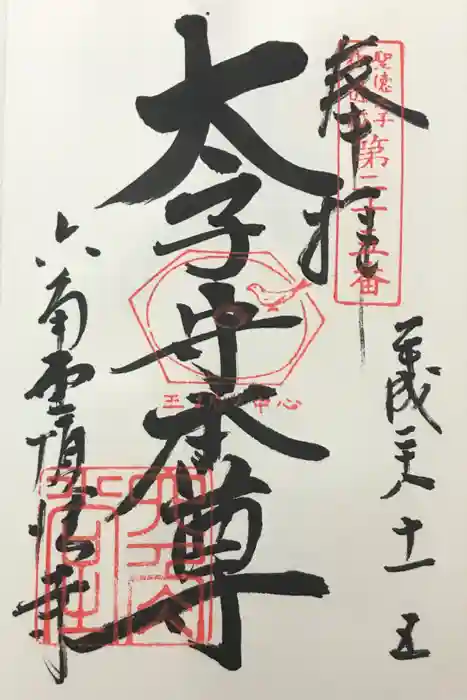 奉拝
聖徳太子
第二十五番
平成二十八 十一 五
太子守本尊
中心
六角堂頂法寺